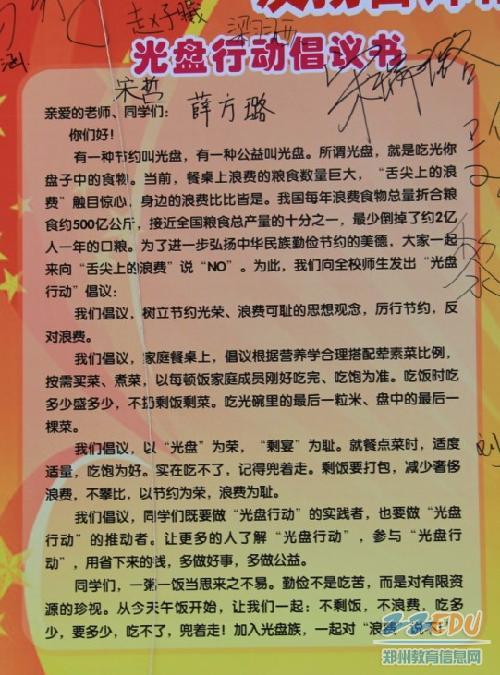 赵子曦
光盘行动倡议书
宋哲
薛方璐
亲爱的老师、同学们：
你们好！
有一种节约叫光盘，有一种公益叫光盘。所谓光盘，就是吃光你
盘子中的食物。当前，餐桌上浪费的粮食数量巨大，“舌尖上的浪
费”触目惊心，身边的浪费比比皆是。我国每年浪费食物总量折合粮
食约500亿公斤，接近全国粮食总产量的十分之一，最少倒掉了约2亿
人一年的口粮。为了进一步弘扬中华民族勤俭节约的美德，大家一起
来向“舌尖上的浪费”说“NO”。为此，我们向全校师生发出“光盘
行动”倡议：
我们倡议，树立节约光荣、浪费可耻的思想观念，厉行节约，反
对浪费。
我们倡议，家庭餐桌上，倡议根据营养学合理搭配荤素菜比例，
按需买菜、煮菜，以每顿饭家庭成员刚好吃完、吃饱为准。吃饭时吃
多少盛多少，不扔剩饭剩菜。吃光碗里的最后一粒米、盘中的最后一
棵菜。
我们倡议，以“光盘”为荣，“剩宴”为耻。就餐点菜时，适度
适量，吃饱为好。实在吃不了，记得兜着走。剩饭要打包，减少奢侈
浪费，不攀比，以节约为荣，浪费为耻。
我们倡议，同学们既要做“光盘行动”的实践者，也要做“光盘
行动”的推动者。让更多的人了解“光盘行动”，参与“光盘行
动”，用省下来的钱，多做好事，多做公益。
同学们，一粥一饭当思来之不易。勤俭不是吃苦，而是对有限资
源的珍视。从今天午饭开始，让我们一起：不剩饭，不浪费，吃多
少，要多少，吃不了，兜着走！加入光盘族，一起对“浪费”说不！
ZZEDU
郑州教育信息网